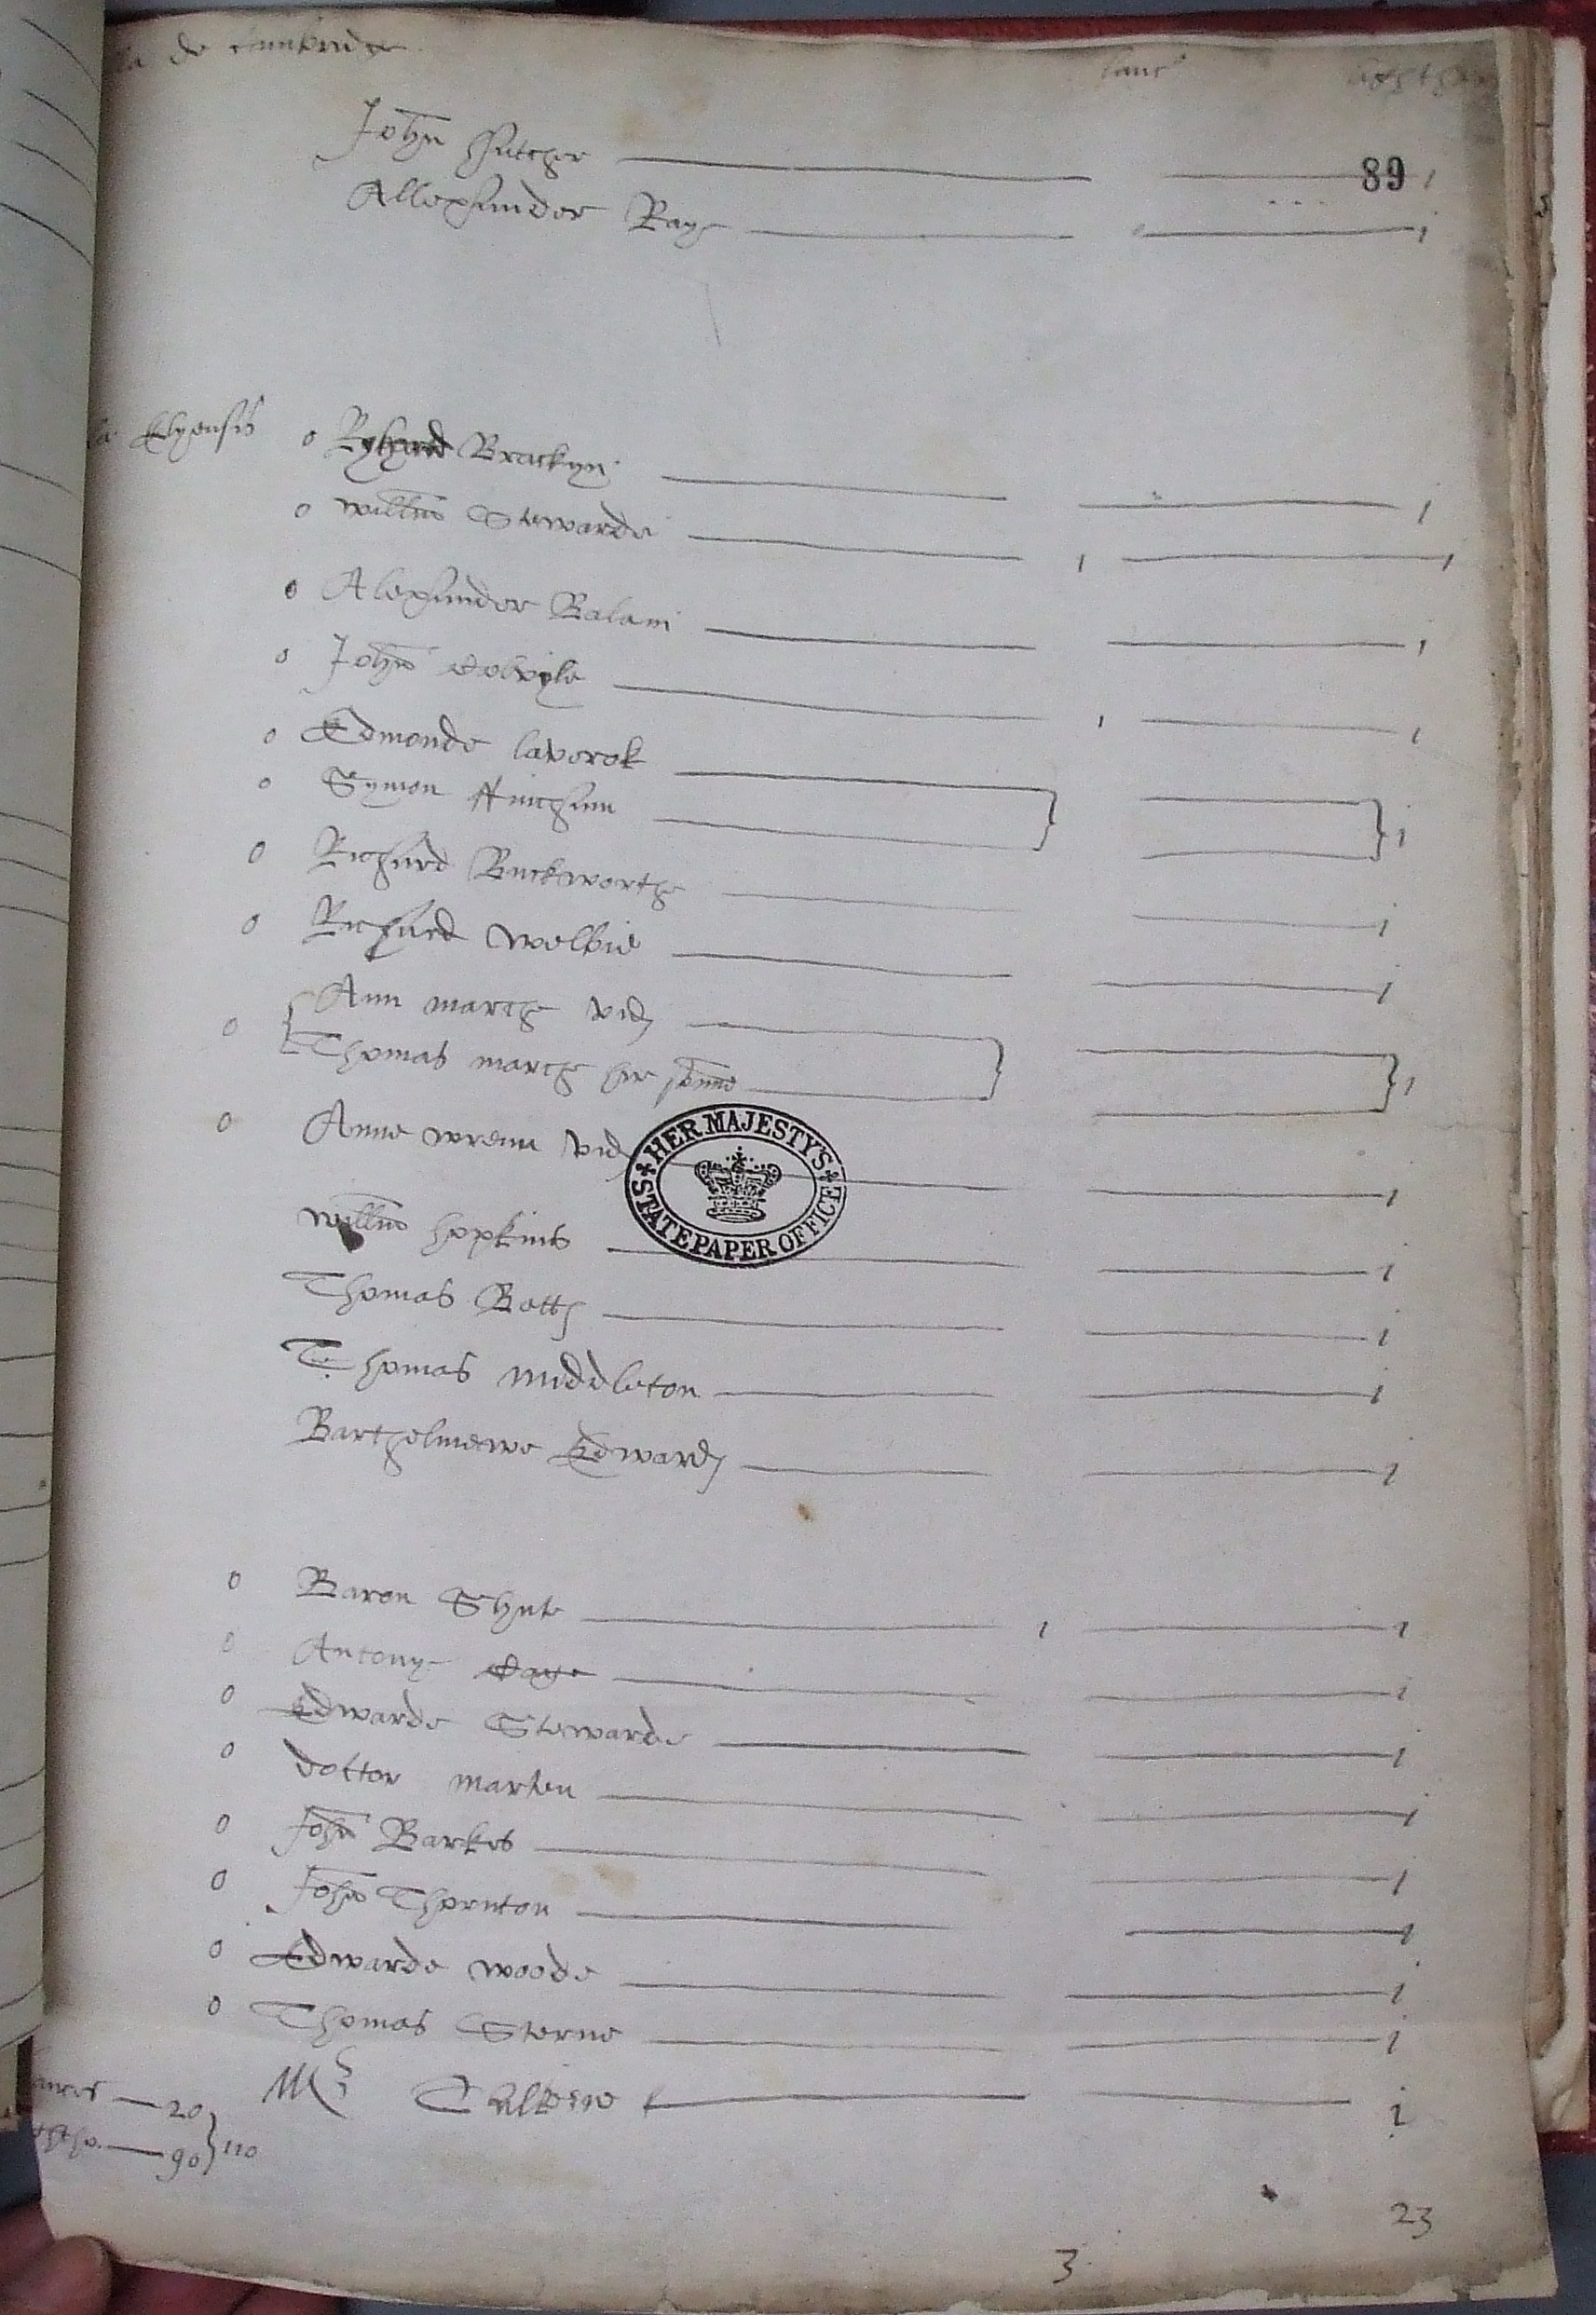 de cambridg
launc
John
89 1
Allexsander Raye 1
Elyensis o Rychard Brackyn j
o Willm Stewarde 1 1
o Alexsander Balam 1
o John Colvyle 1 1
o Edmonde laverok
o Symon 1
o Richard Buckworthe j
o Richard Welbie j
Ann marche vid
o Thomas marche her sonne 1
o Anne wrenn vid 1
HER MAJESTY'S STATE PAPER OFFICE
Willm hopkins 1
Thomas Botts j
Thomas middleton 1
Bartholmewe Edwards 1
o Baron Shute 1 1
o Antonye Cage i
o Edwarde Stewarde 1
o dottor marten j
o John Barkes j
o John Thornton 1
o Edwarde Woode j
o Thomas Sterne j
Mr i
20
90 } 110
23
3